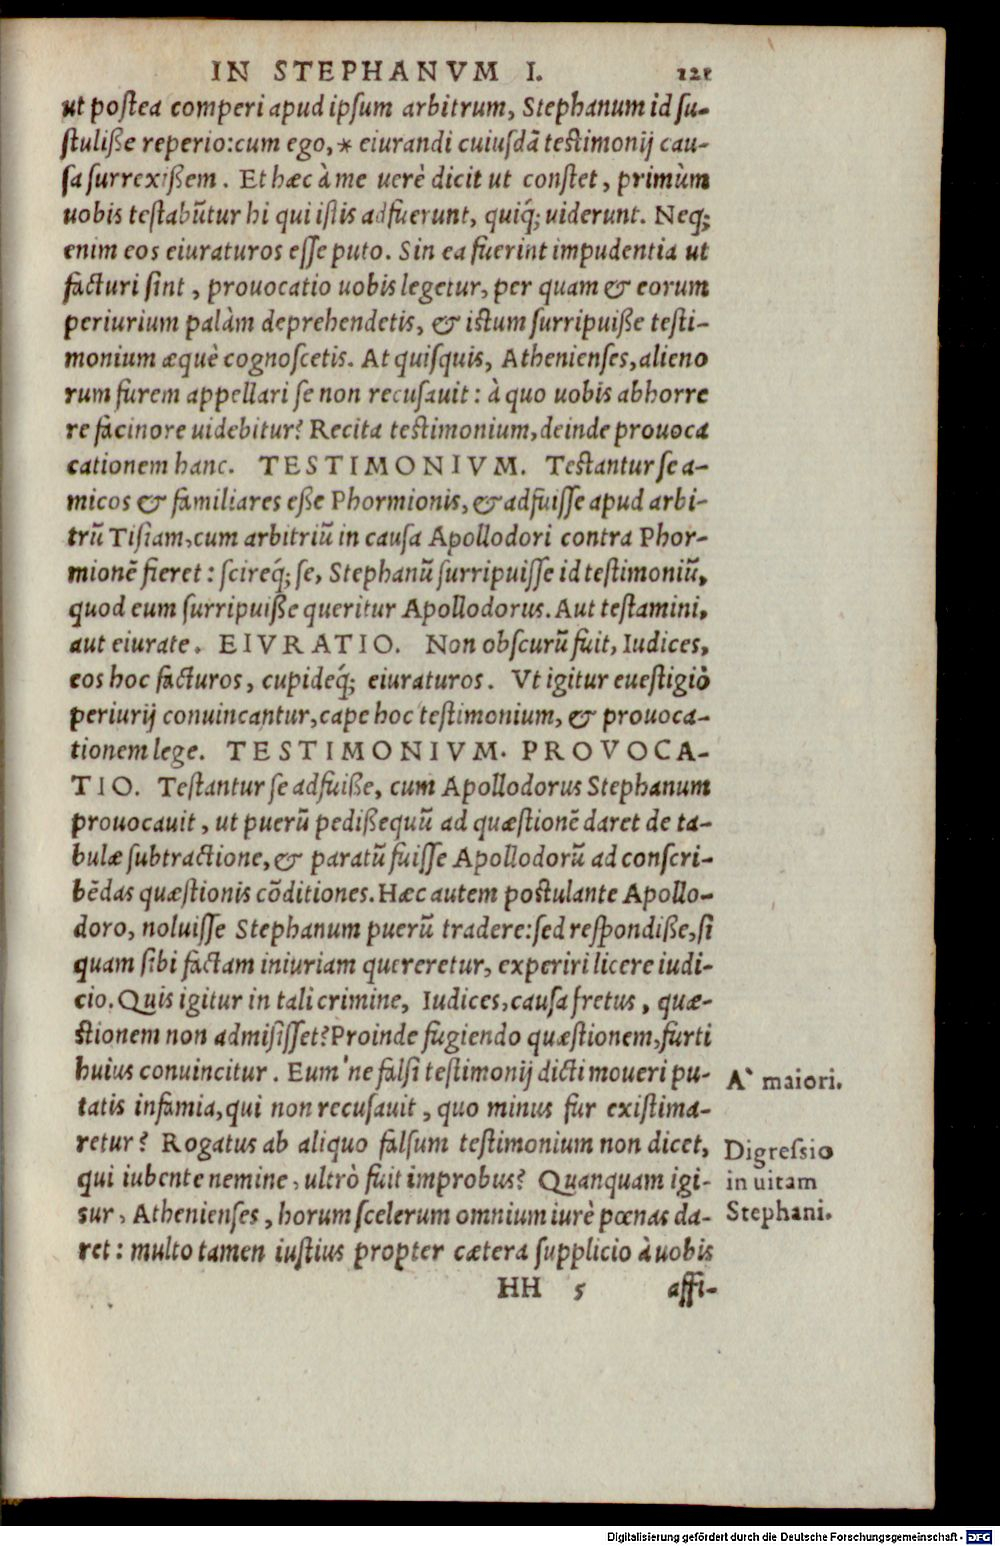 IN STEPHANVM I. 121
ut postea comperi apud ipsum arbitrum, Stephanum id su-
stulisse reperio: cum ego, * eiurandi cuiusdã testimonij cau-
sa surrexissem. Et hæc à me uerè dicit ut constet, primùm
uobis testabũtur hi qui istis adfuerunt, quiq́; uiderunt. Neq;
enim eos eiuraturos esse puto. Sin ea fuerint impudentia ut
facturi sint, prouocatio uobis legetur, per quam & eorum
periurium palàm deprehendetis, & istum surripuisse testi-
monium æquè cognoscetis. At quisquis, Athenienses, alieno
rum furem appellari se non recusauit: à quo uobis abhorre
re facinore uidebitur? Recita testimonium, deinde prouoca
cationem hanc. TESTIMONIVM. Testantur se a-
micos & familiares esse Phormionis, & adfuisse apud arbi-
trũ Tisiam, cum arbitriũ in causa Apollodori contra Phor-
mionẽ fieret: scireq́; se, Stephanũ surripuisse id testimoniũ,
quod eum surripuisse queritur Apollodorus. Aut testamini,
aut eiurate. EIVRATIO. Non obscurũ fuit, Iudices,
eos hoc facturos, cupideq́; eiuraturos. Vt igitur euestigiò
periurij conuincantur, cape hoc testimonium, & prouoca-
tionem lege. TESTIMONIVM. PROVOCA-
TIO. Testantur se adfuisse, cum Apollodorus Stephanum
prouocauit, ut puerũ pedissequũ ad quæstionẽ daret de ta-
bulæ subtractione, & paratũ fuisse Apollodorũ ad conscri-
bẽdas quæstionis cõditiones. Hæc autem postulante Apollo-
doro, noluisse Stephanum puerũ tradere: sed respondisse, si
quam sibi factam iniuriam quereretur, experiri licere iudi-
cio. Quis igitur in tali crimine, Iudices, causa fretus, quæ-
stionem non admisisset? Proinde fugiendo quæstionem, furti
huius conuincitur. Eum'ne falsi testimonij dicti moueri pu-
tatis infamia, qui non recusauit, quo minus fur existima-
retur? Rogatus ab aliquo falsum testimonium non dicet,
qui iubente nemine, ultrò fuit improbus? Quanquam igi-
sur, Athenienses, horum scelerum omnium iurè pœnas da-
ret: multo tamen iustius propter cætera supplicio à uobis
HH 5 affi-
A` maiori.
Digressio
in uitam
Stephani.
Digitalisierung gefördert durch die Deutsche Forschungsgemeinschaft - DFG